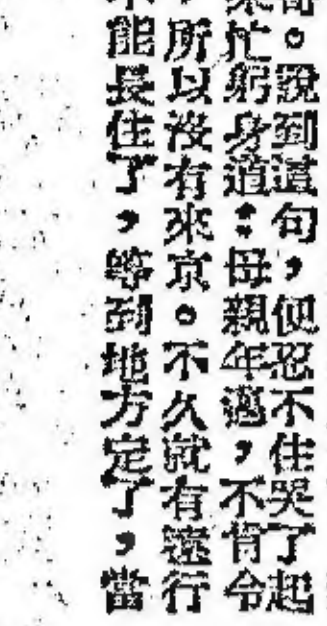 。說到這句，便忍不住哭了起
忙躬身道：母親年邁，不肯令
，所以沒有來京。不久就有遠行
能長住了，等到地方定了，當